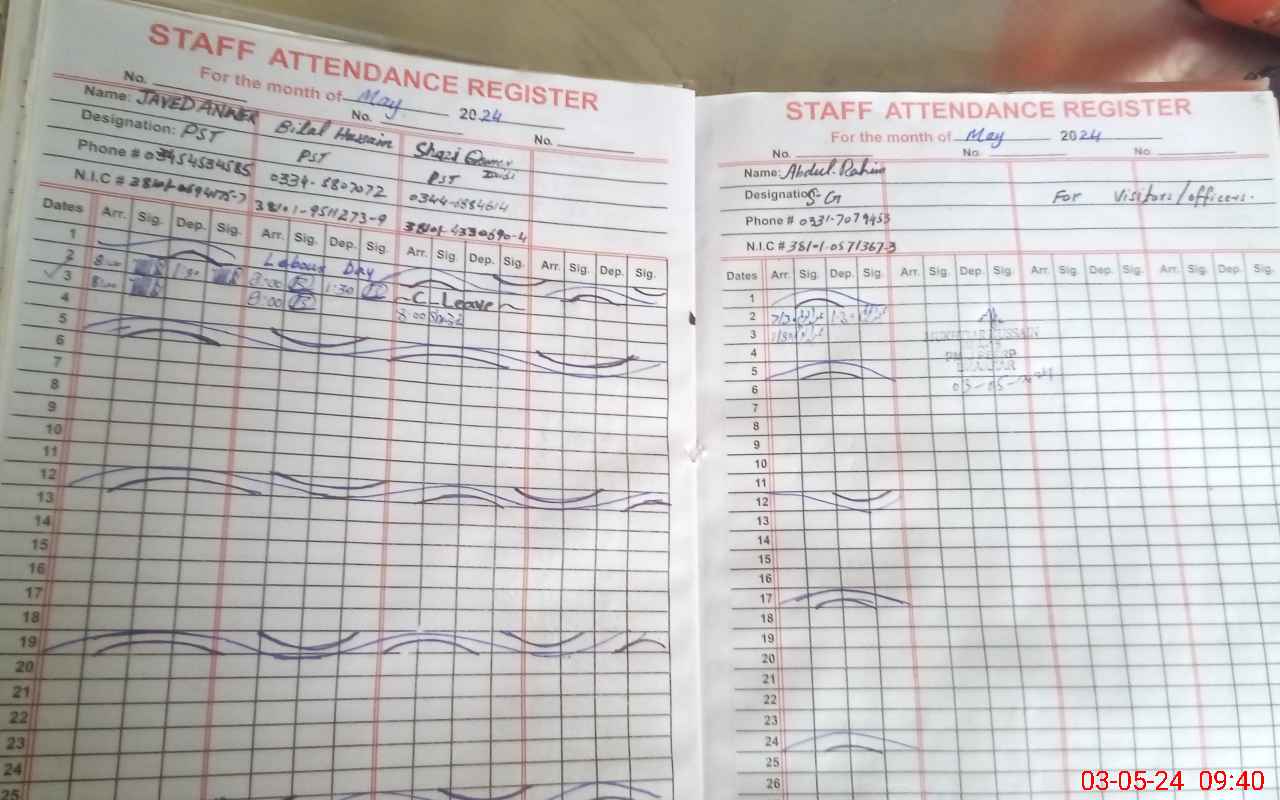 STAFF ATTENDANCE REGISTER
For the month of May 2024
No. No. No.
Name: JAVED Bilal Hussain Shazi
Designation: PST PST PST
Phone # 03454534585 0334-5807072 0344-
N.I.C # 38101-9511273-9 38101-4330690-4
Dates Arr. Sig. Dep. Sig. Arr. Sig. Dep. Sig. Arr. Sig. Dep. Sig. Arr. Sig. Dep. Sig.
1 Labour Day
2 8:00 1:30 8:00 1:30 C-Leave
3 8:00 8:00 8:00
4
5
6
7
8
9
10
11
12
13
14
15
16
17
18
19
20
21
22
23
24
25
STAFF ATTENDANCE REGISTER
For the month of May 2024
No. No. No.
Name: Abdul Rahim
Designation: SG For Visitors/officers.
Phone # 0331-7079453
N.I.C # 38101-0571367-3
Dates Arr. Sig. Dep. Sig. Arr. Sig. Dep. Sig. Arr. Sig. Dep. Sig. Arr. Sig. Dep. Sig.
1
2
3
4
5
6 03-05-2024
7
8
9
10
11
12
13
14
15
16
17
18
19
20
21
22
23
24
25
26
03-05-24 09:40